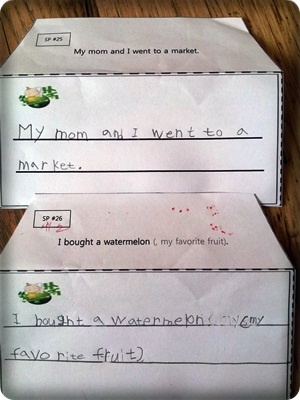 SP #25
My mom and I went to a market.
My mom and I went to a
market.
SP #26
I bought a watermelon (, my favorite fruit).
I bought a watermelon (my
favorite fruit)